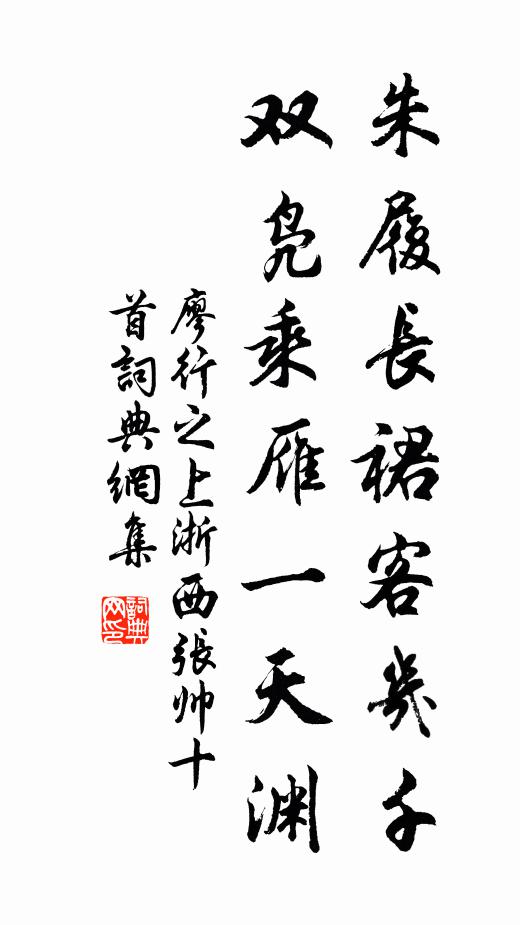 朱履長裙客幾千
双凫乘雁一天渊
廖行之上浙西張帅十
首詞典網集
詞典
网印